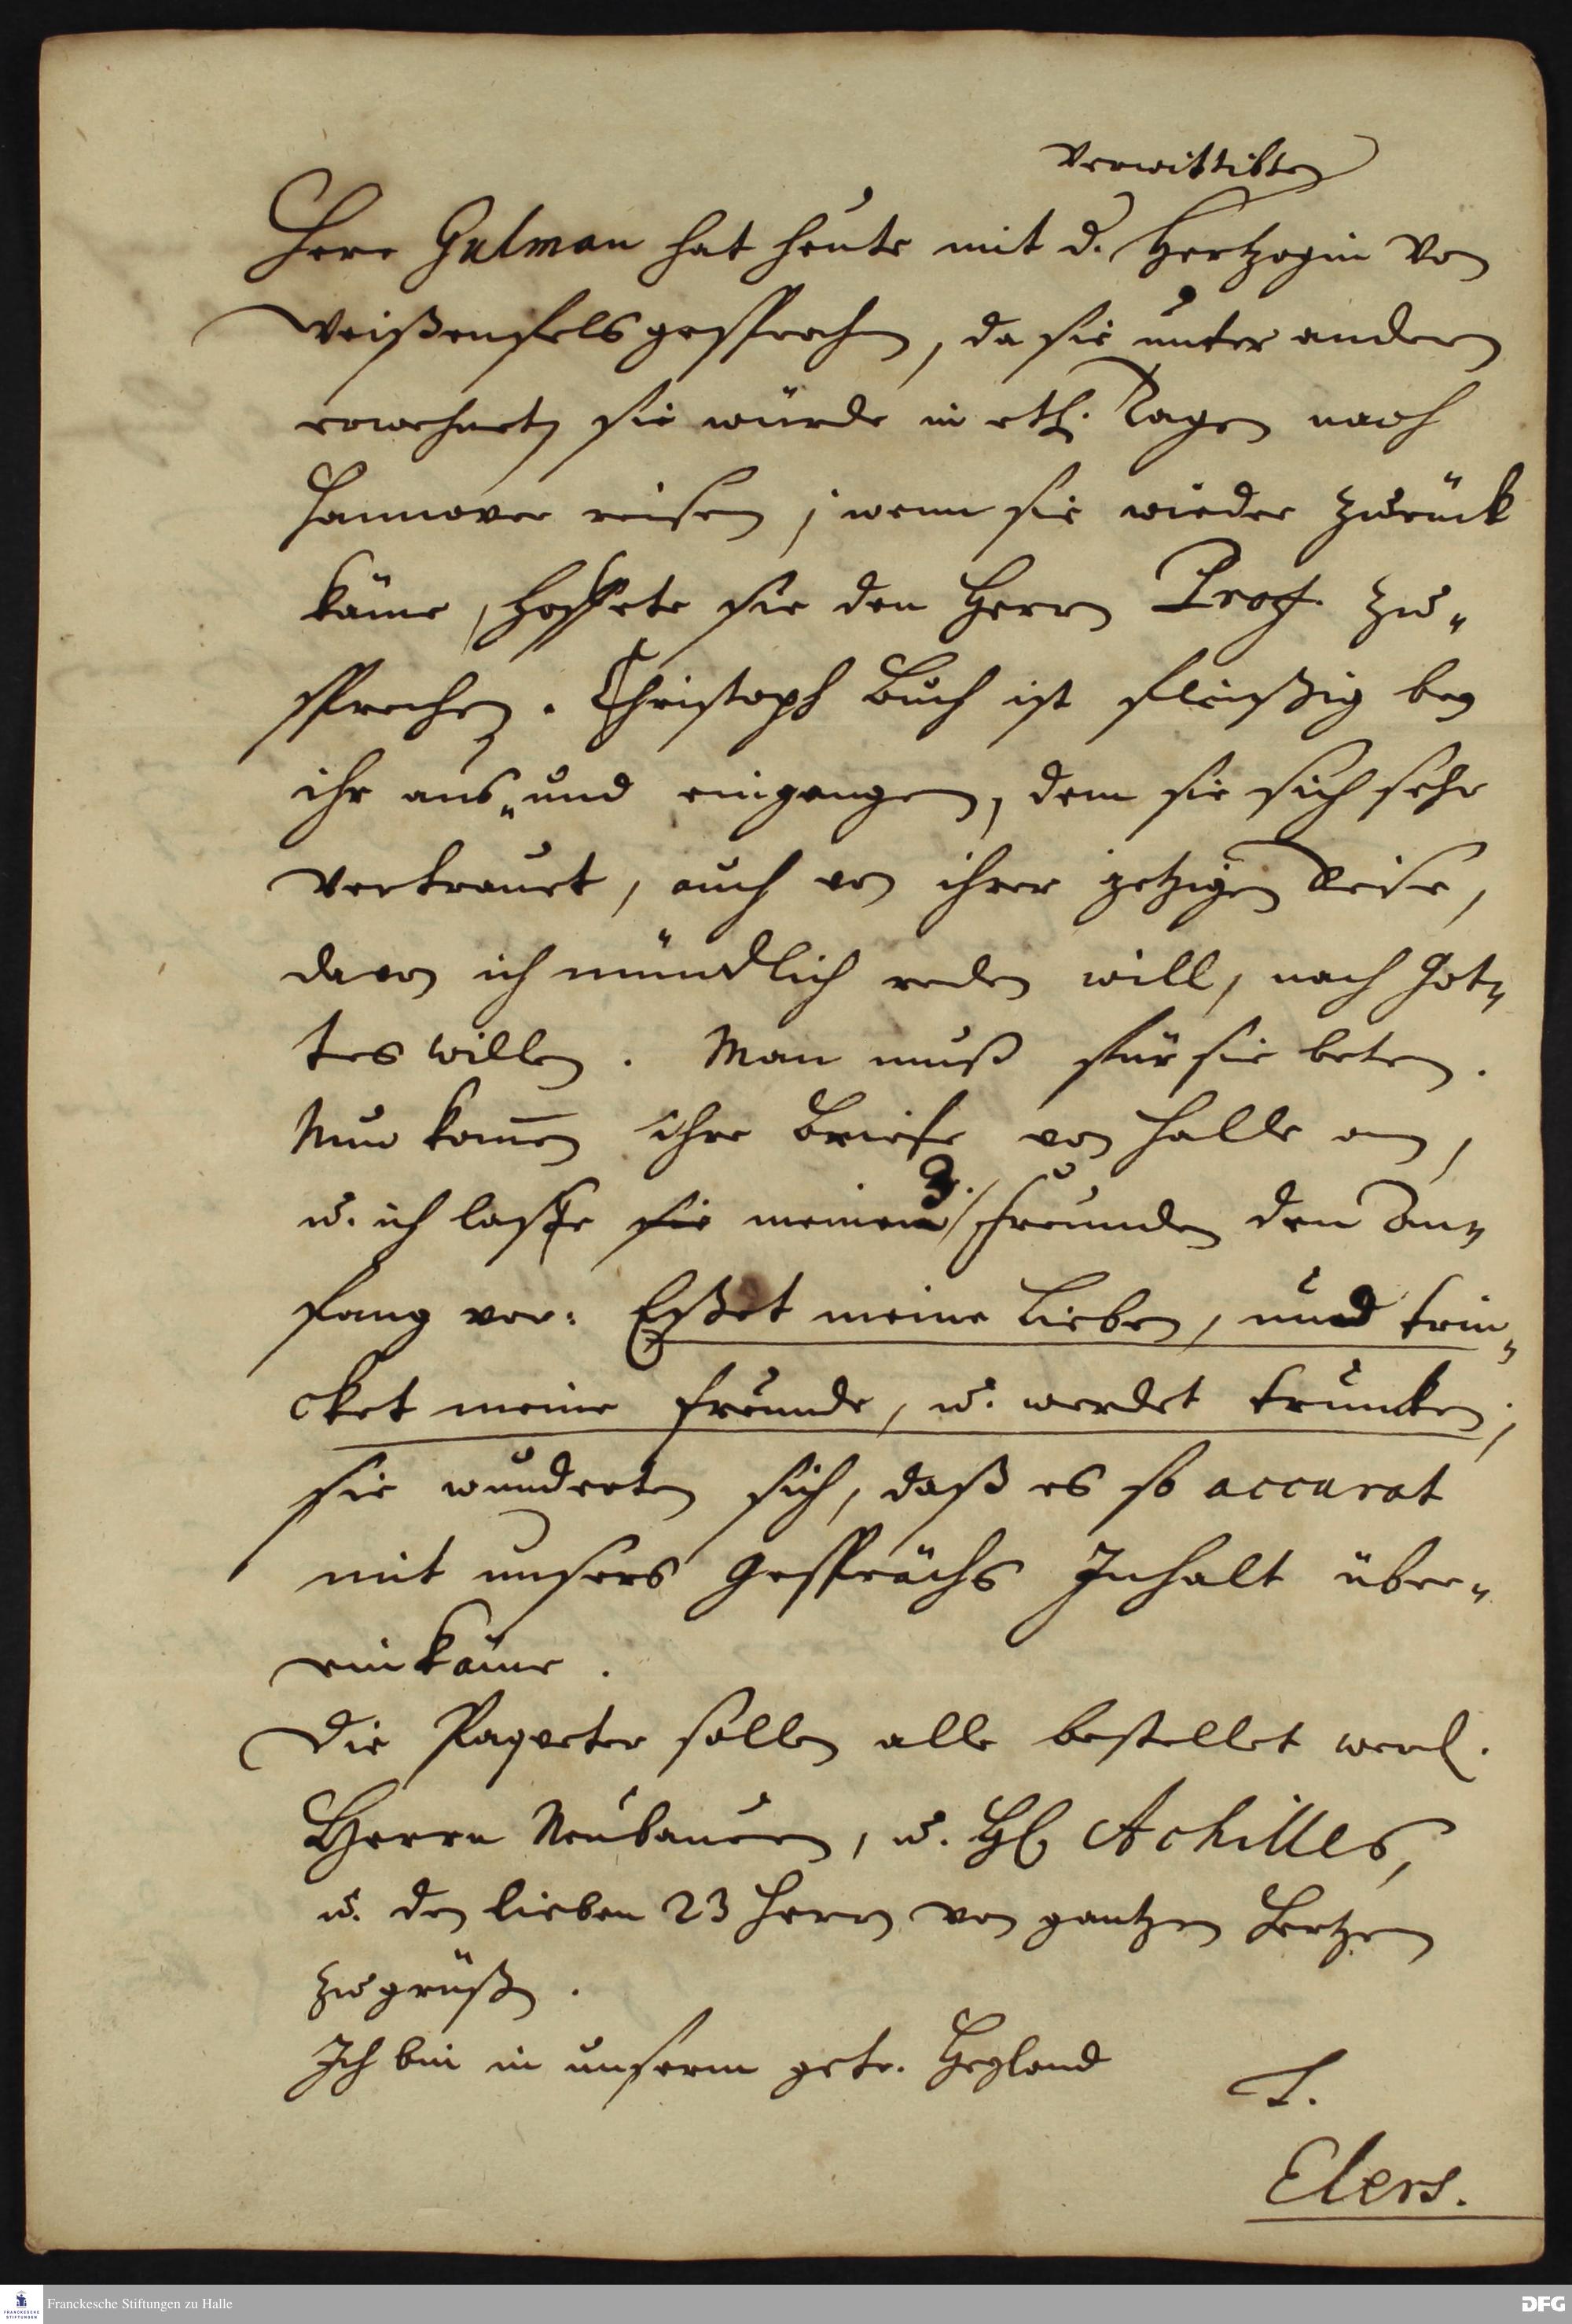 verwittibten
Herr Gulman hat heute mit d. Hertzogin von
Weißenfels gesprochen, da sie unter andern
erwehnet, sie würde in etl. Tagen nach
Hannover reisen; wenn sie wieder zurück
käme, hoffete sie den Herrn Prof. zu-
sprechen. Christoph Buch ist fleißig bey
ihr aus- und eingangen, dem sie sich sehr
vertrauet, auch von ihrer jetzigen Reise,
davon ich mündlich reden will, nach Got-
tes willen. Man muß für sie beten.
Nun kom̅en ihre Briefe von Halle an,
u. ich laße sie meinen 3. Freunden den An-
fang vor: Eßet meine Lieben, und trin-
cket meine Freunde, u. werdet truncken;
sie wunderten sich, daß es so accurat
mit unsers Gesprächs Inhalt über-
einkäme.
Die Paqveter sollen alle bestellet werd.
Herrn Neubauern, u. H. Achilles,
u. den lieben 23 Herrn von gantzen Hertzen
zu grüßen.
Ich bin in unserm getr. Heyland
T.
Elers.
Franckesche Stiftungen zu Halle
FRANCKESCHE STIFTUNGEN
DFG